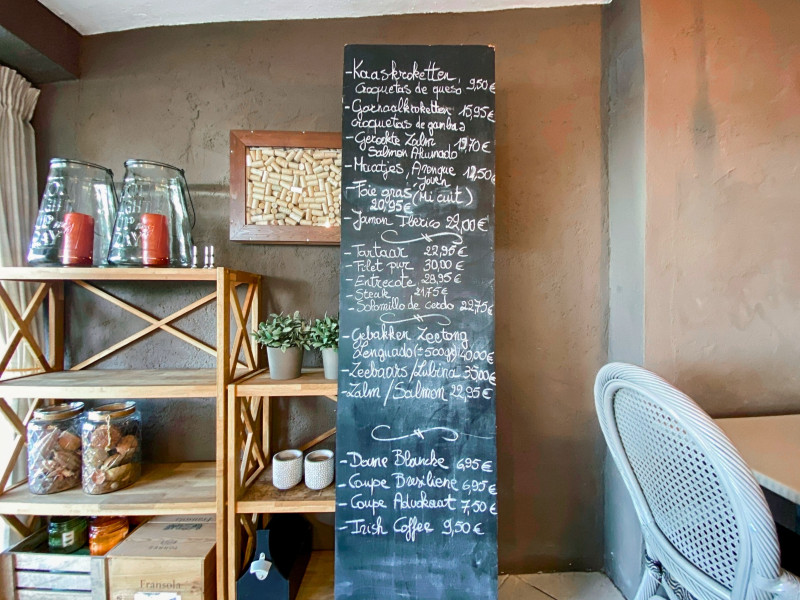 -Kaaskroketten,
Croquetas de queso 9,50€
-Garnaalkroketten 15,95€
croquetas de gambas
-Gerookte Zalm 19,70€
Salmon Ahumado
-Maatjes, Arenque 12,50€
Joven
-Foie gras (Mi cuit)
20,95€
-Jamon Iberico 22,00€
-Tartaar 22,95€
-Filet pur 30,00€
-Entrecote 28,95€
-Steak 21,75€
-Solomillo de cerdo 22,75€
-Gebakken Zeetong
Lenguado (±500gr) 40,00€
-Zeebaars/Lubina 35,00€
-Zalm / Salmon 22,95€
-Dame Blanche 6,95€
-Coupe Bresiliene 6,95€
-Coupe Advokaat 7,50€
-Irish Coffee 9,50€
Fransola